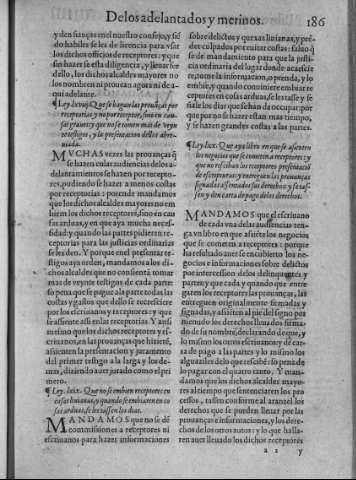 Delos adelantados y merinos. 186
y den fianças enel nuestro consejo, y sié
do habiles se les de licencia para vsar
los dichos officios de receptores: y que
sin hazer se esta diligencia, y lleuar ser
dello, los dichos alcaldes mayores no
los nombren ni se hagan agora ni de a-
qui adelante.
¶ Ley. lxviij. Que se hagan las prouanças por
receptorias y no por receptores, sino en cau-
sas graues: y que no se tomen mas de veyn
te testigos, y la presentacion dellos abre-
uiada.
MVCHAS vezes las prouanças q̃
se hazen enlas audiencias delos a-
delantamientos se hazen por recepto-
res, pudiendo se hazer a menos costas
por receptorias: por ende mandamos
que los dichos alcaldes mayores no en
bien los dichos receptores, sino en cau
sas arduas, y en que aya mucha neces-
sidad: y quando las partes pidieren re-
ceptorias para las justicias ordinarias
se les den. Y porque enel presentar te-
stigos aya orden, mandamos a los di-
chos alcaldes que no consientã tomar
mas de veynte testigos de cada parte
so pena que se pague ala parte todas las
costas y gastos que dello se recresciere
por los escriuanos y receptores: y que
se assiente assi enlas receptorias. Y assi
mesmo que los dichos receptores y es-
criuanos, en las prouanças que hiziere,
assienten la presentacion y juramento
del primer testigo a la larga: y los de-
mas, diziendo auer jurado como el pri
mero.
¶ Ley. lxix. Que no se embien receptores en
cosas liuianas, y quando se embiaren en co
sas arduas, se les tassen los dias.
MANDAMOS que no se dẽ
commissiones a receptores ni
escriuanos para hazer informaciones
sobre delictos y quexas liuianas, y prẽ-
der culpados por euitar costas: saluo q̃
se de mandamiento para que la justi-
cia ordinaria del lugar donde acaescie
re, tome la informacion, o prenda, y lo
embie, y quando conuiniere embiar re
ceptores en cosas arduas, se les tasse y se
ñale los dias que se han de occupar: por
que por no se hazer estan mas tiempo,
y se hazen grandes costas a las partes.
¶ Ley. lxx. Que aya libro en que se assienten
los negocios que se cometen a receptores: y
que no resciban los receptores presentació
de escripturas y entreguen las prouanças
signadas assentados los derechos: y se tas-
sen y den carta de pago delos derechos.
MANDAMOS que el escriuano
de cada vna delas audiencias ten-
ga vn libro en que assiente los negocios
que se cometen a receptores: porque
ha resultado auer se encubierto los ne-
gocios e informaciones sobre delictos
por intercession delos delinquentes y
partes: y que cada y quando que entre
garen los receptores las prouanças, las
entreguen originalmente firmadas y
signadas, y assienten al pie del signo por
menudo los derechos lleuados firma-
do de su nombre, declarando de que, y
lo mismo los otros escriuanos: y den car
ta de pago a las partes: y lo mismo los
alguaziles delo que rescibẽ: so pena de
lo pagar con el quatro tanto. Y man-
damos que los dichos alcaldes mayo-
res al tiempo que sentenciaren los pro-
cessos, tassen conforme al aranzel los
derechos que se pueden lleuar por las
prouanças e informaciones, y los dere-
chos delos otros autos: y lo que halla-
ren auer lleuado los dichos receptores
a 2 y